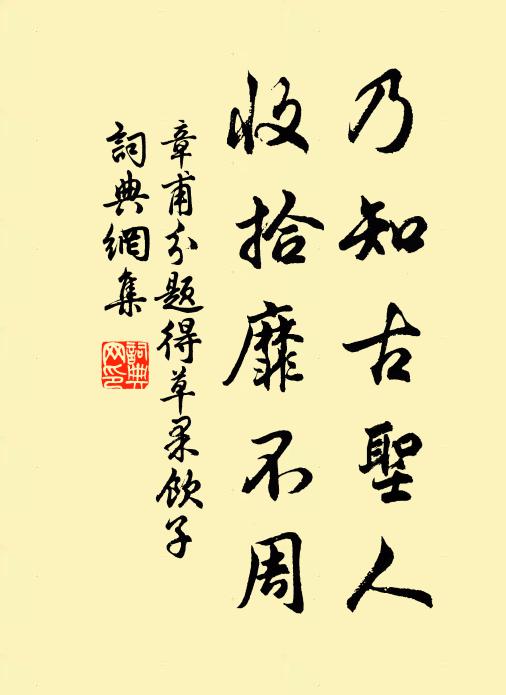 乃知古聖人
收拾靡不周
章甫分題得草果飲子
詞典網集
詞典
网印